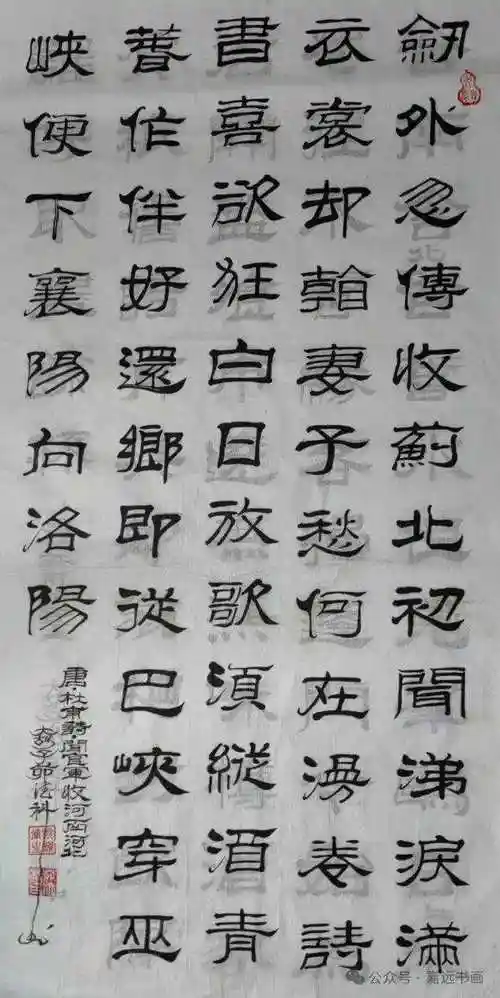 劒外忽傳收薊北初聞涕淚滿
衣裳却看妻子愁何在漫卷詩
書喜欲狂白日放歌須縱酒青
萅作伴好還鄉即從巴峽穿巫
峽便下襄陽向洛陽
唐·杜甫詩·聞官軍收河南河北
卯法科
公众号·远书画